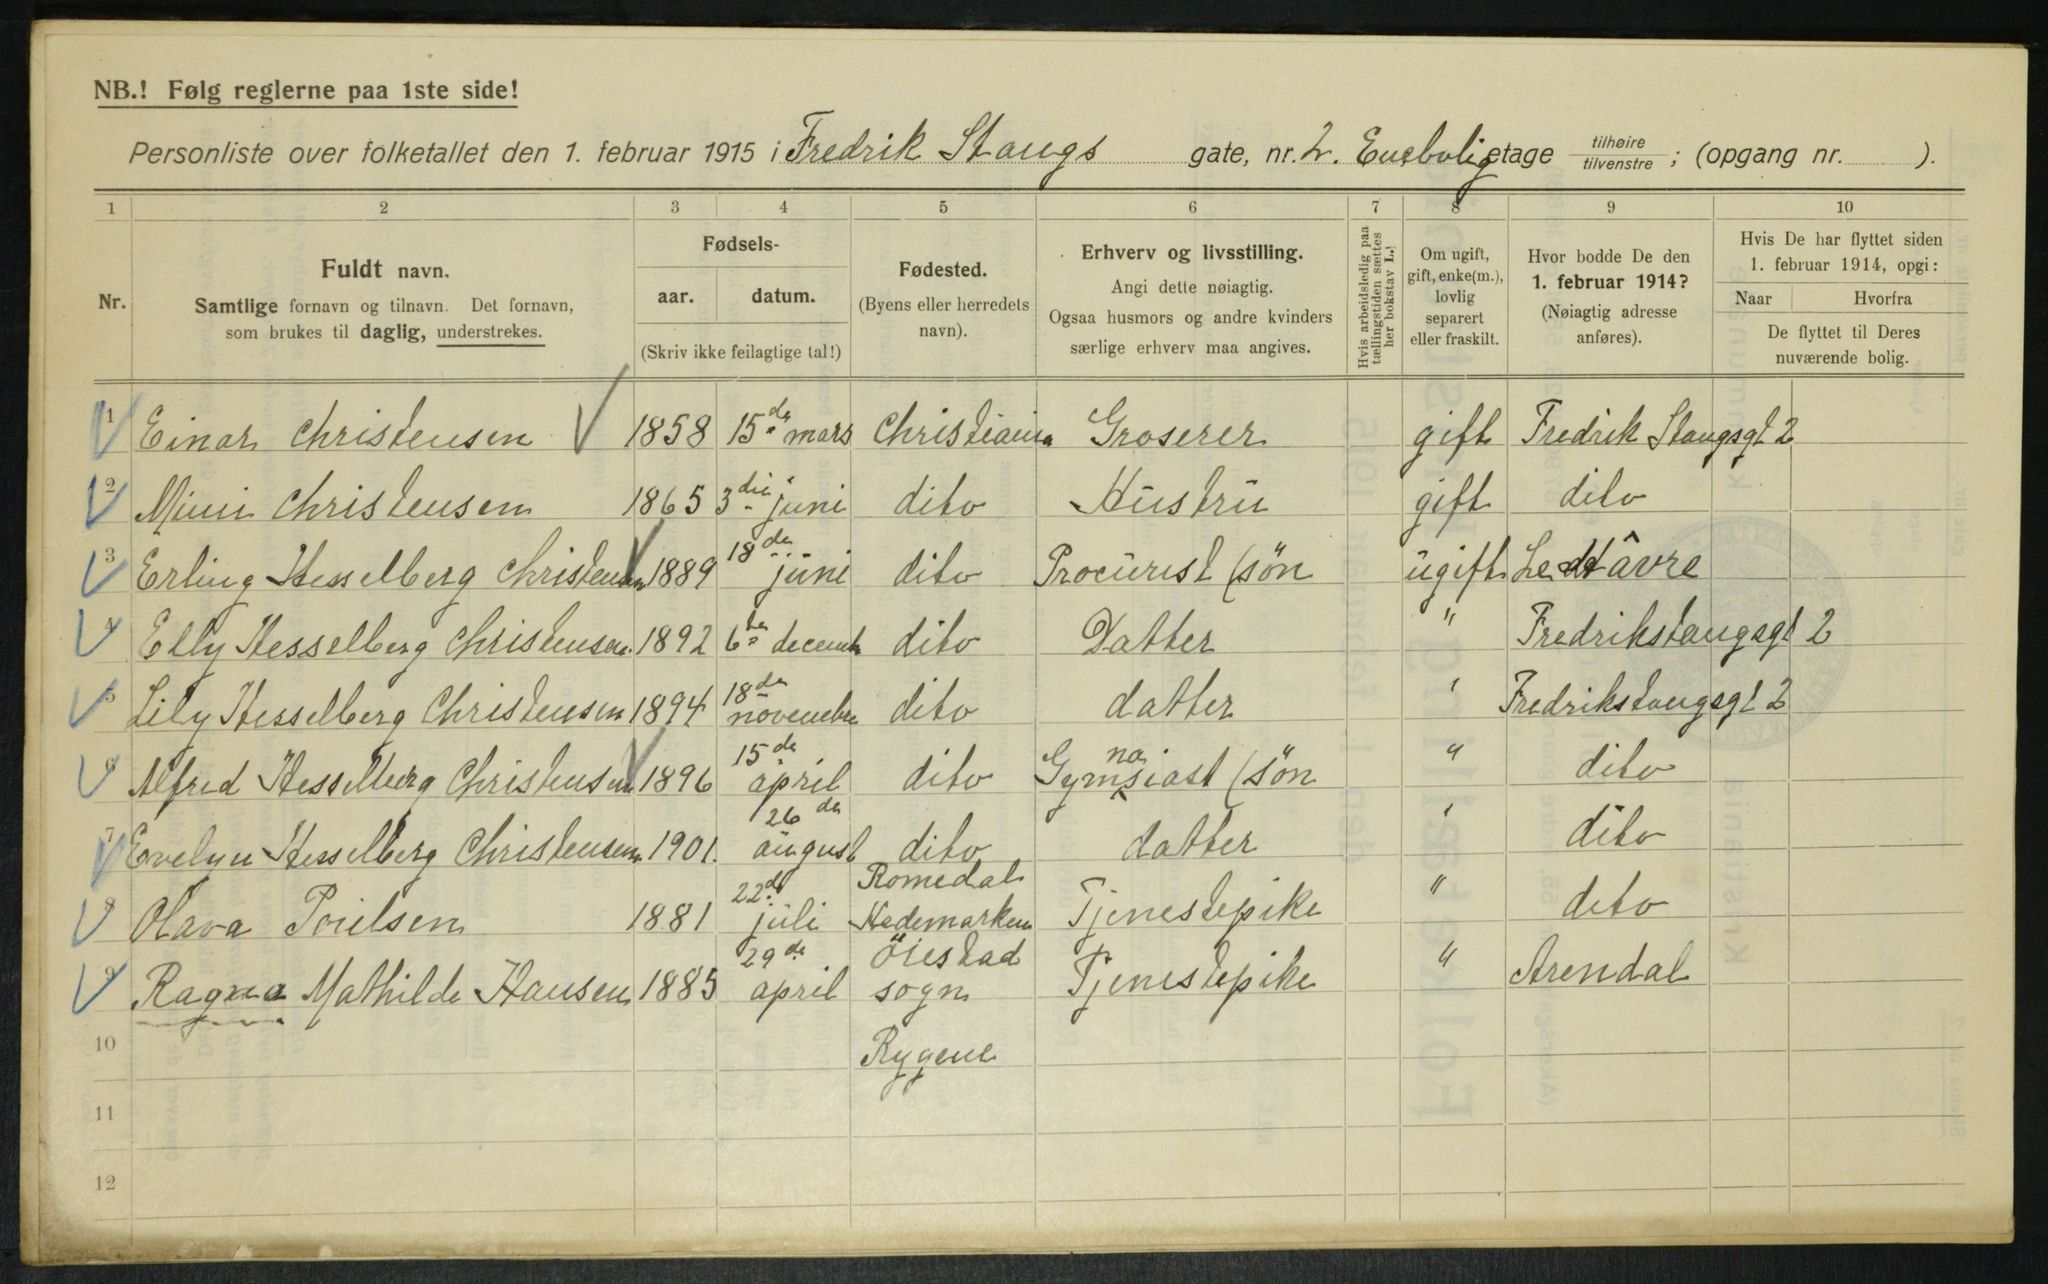 NB.! Følg reglerne paa 1ste side!
Personliste over folketallet den 1. februar 1915 i Fredrik Stangs gate, nr. 2. Enebolig etage tilhøire / tilvenstre ; (opgang nr. ).
1 2 3 4 5 6 7 8 9 10
Nr.
Fuldt navn.
Samtlige fornavn og tilnavn. Det fornavn,
som brukes til daglig, understrekes.
Fødsels-
aar. datum.
(Skriv ikke feilagtige tal!)
Fødested.
(Byens eller herredets
navn).
Erhverv og livsstilling.
Angi dette nøiagtig.
Ogsaa husmors og andre kvinders
særlige erhverv maa angives.
Hvis arbeidsledig paa
tællingstiden sættes
her bokstav L.
Om ugift,
gift, enke(m.),
lovlig
separert
eller fraskilt.
Hvor bodde De den
1. februar 1914?
(Nøiagtig adresse
anføres).
Hvis De har flyttet siden
1. februar 1914, opgi:
Naar Hvorfra
De flyttet til Deres
nuværende bolig.
1 Einar Christensen 1858 15de mars Christiania Groserer gift Fredrik Stangsgt 2
2 Mimi Christensen 1865 3die juni dito Hustru gift dito
3 Erling Hesselberg Christensen 1889 18de juni dito Procurist (søn ugift Le Hâvre
4 Elly Hesselberg Christensen 1892 6te decemb dito Datter " Fredrikstangsgt 2
5 Lily Hesselberg Christensen 1894 18de novembre dito datter ' Fredrikstangsgt 2
6 Alfred Hesselberg Christensen 1896 15de april dito Gymnasiast (søn " dito
7 Evelyn Hesselberg Christensen 1901. 26de august dito datter ' dito
8 Olava Poulsen 1881 22de juli Romedal Hedemarken Tjenestepike " dito
9 Ragna Mathilde Hansen 1885 29de april Öiestad sogn Tjenestepike " Arendal
10 Rygene
11
12